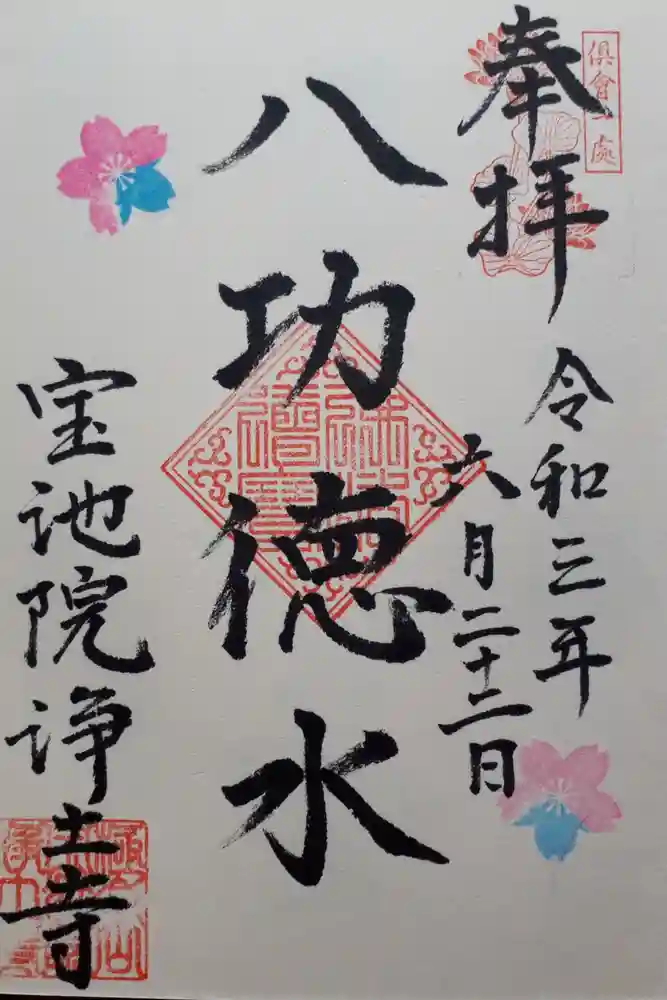 俱會一處
奉拝
令和三年
六月二十二日
八功徳水
宝池院浄土寺